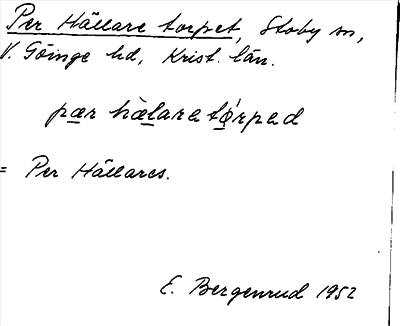 Per Hällare torpet, Stoby sn,
V. Göinge hd, Krist. län.
pær hælara tørpad
= Per Hällares.
E. Bergenrud 1952